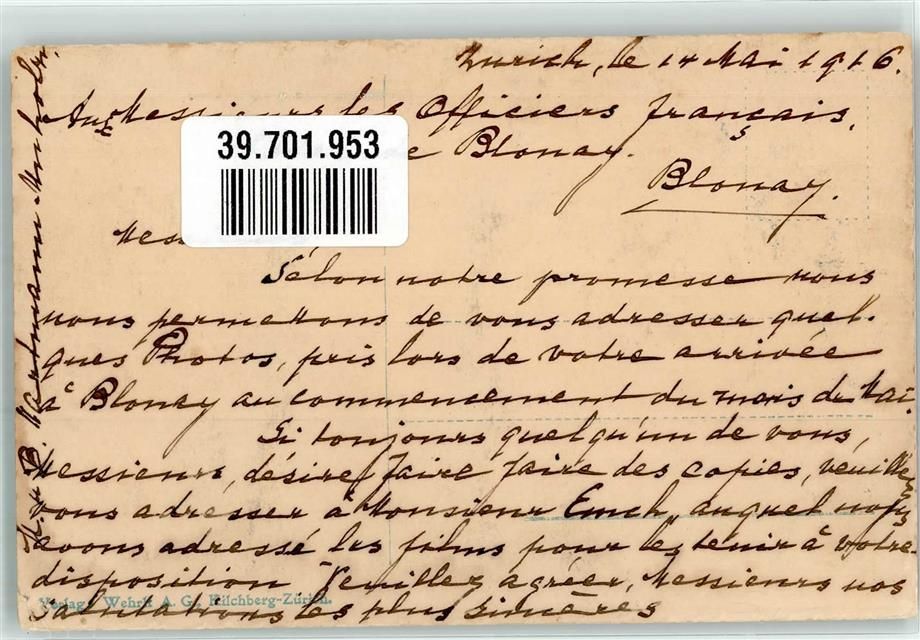 Zurich, le 14 Mai 1916.
Aux Messieurs les Officiers français,
39.701.953
e Blonay.
Blonay.
Mess
Sélon notre promesse nous
nous permettons de vous adresser quel-
ques Photos, pris lors de votre arrivée
à Blonay au commencement du mois de Mai.
Si toujours quelqu'un de vous,
Messieurs, désire faire faire des copies, veuillez
vous adresser à Monsieur Emch, auquel nous
avons adressé les films pour les tenir à votre
disposition. Veuillez agréer, Messieurs nos
salutations les plus sincères
Verlag: Wehrli A. G., Kilchberg-Zürich.
B. Hartmann